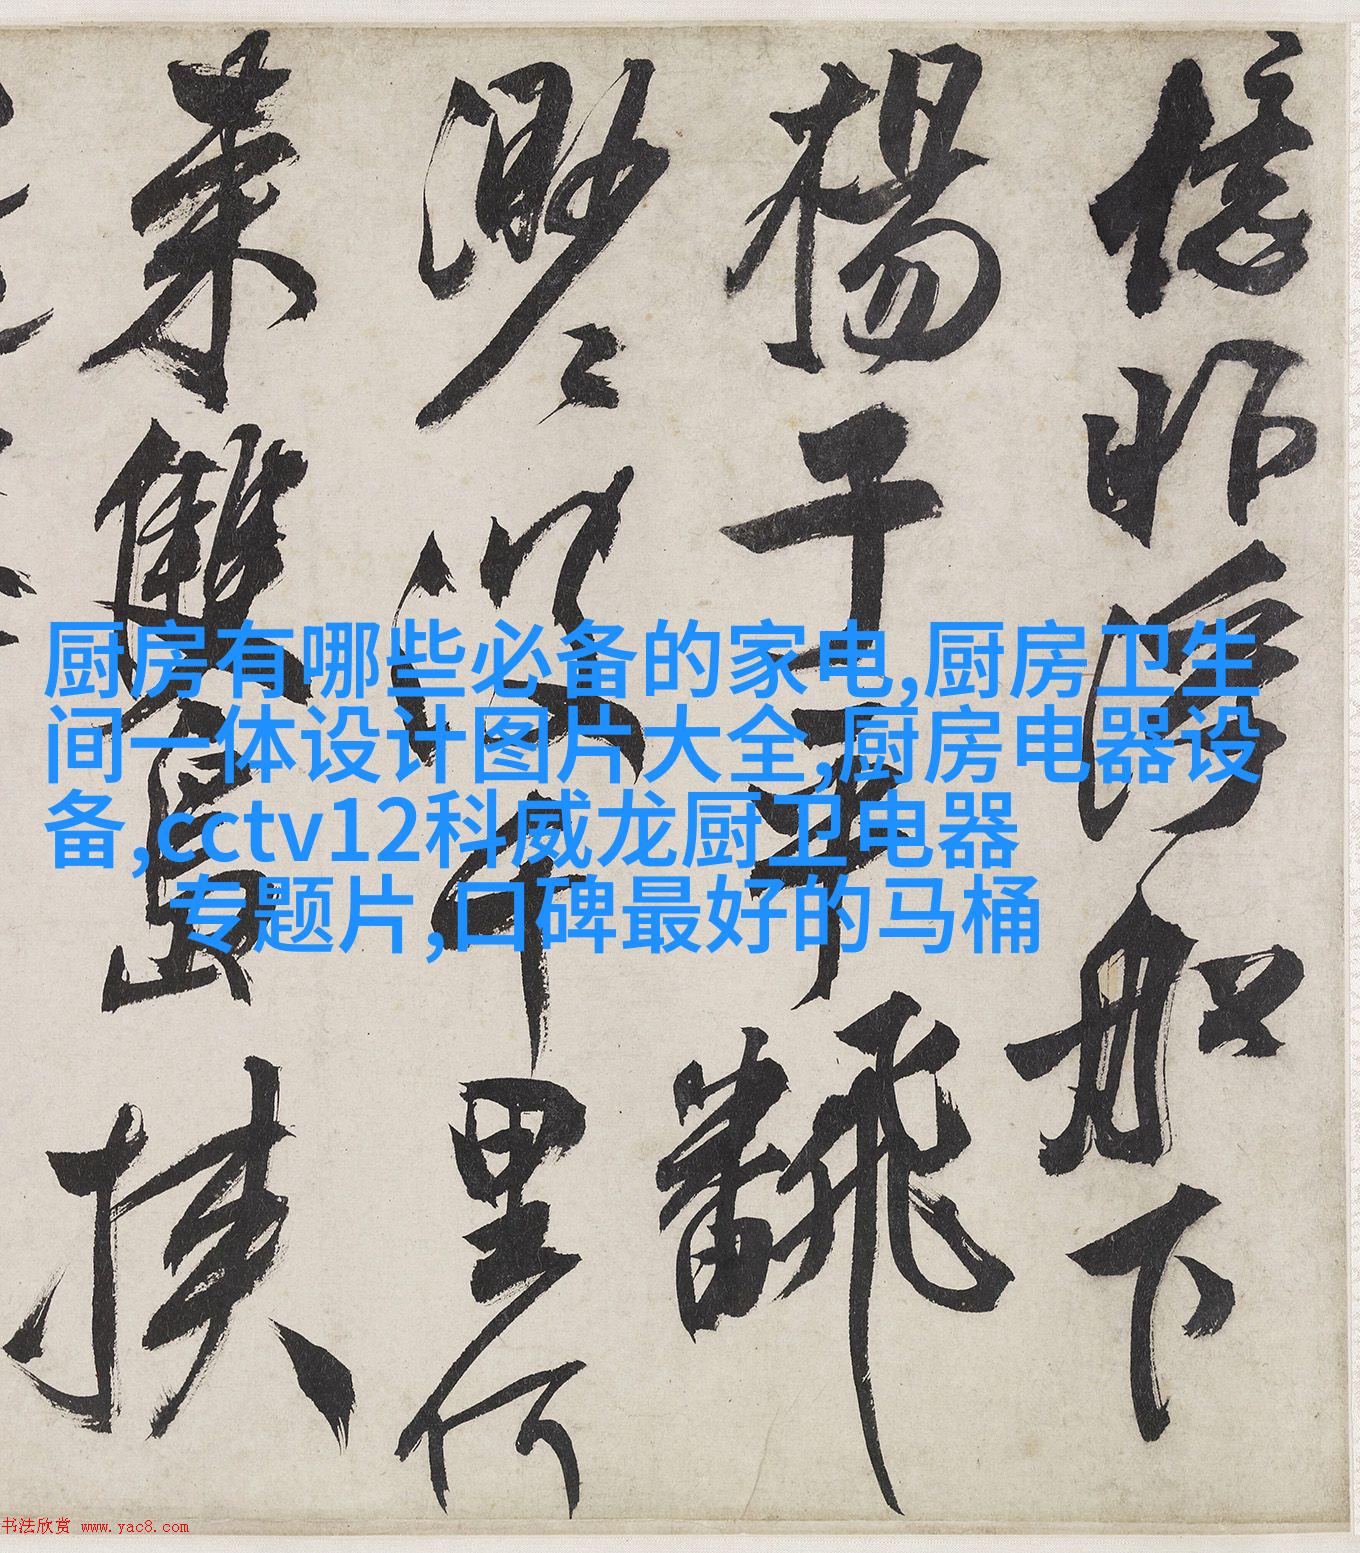 厨房有哪些必备的家电,厨房卫生
间一体设计图片大全,厨房电器设
备,cctv12科威龙厨卫电器
专题片,口碑最好的马桶
憶昨浮船下
楊子平飜
渺々波千里何
來雙島挾
书法欣赏 www.yac8.com